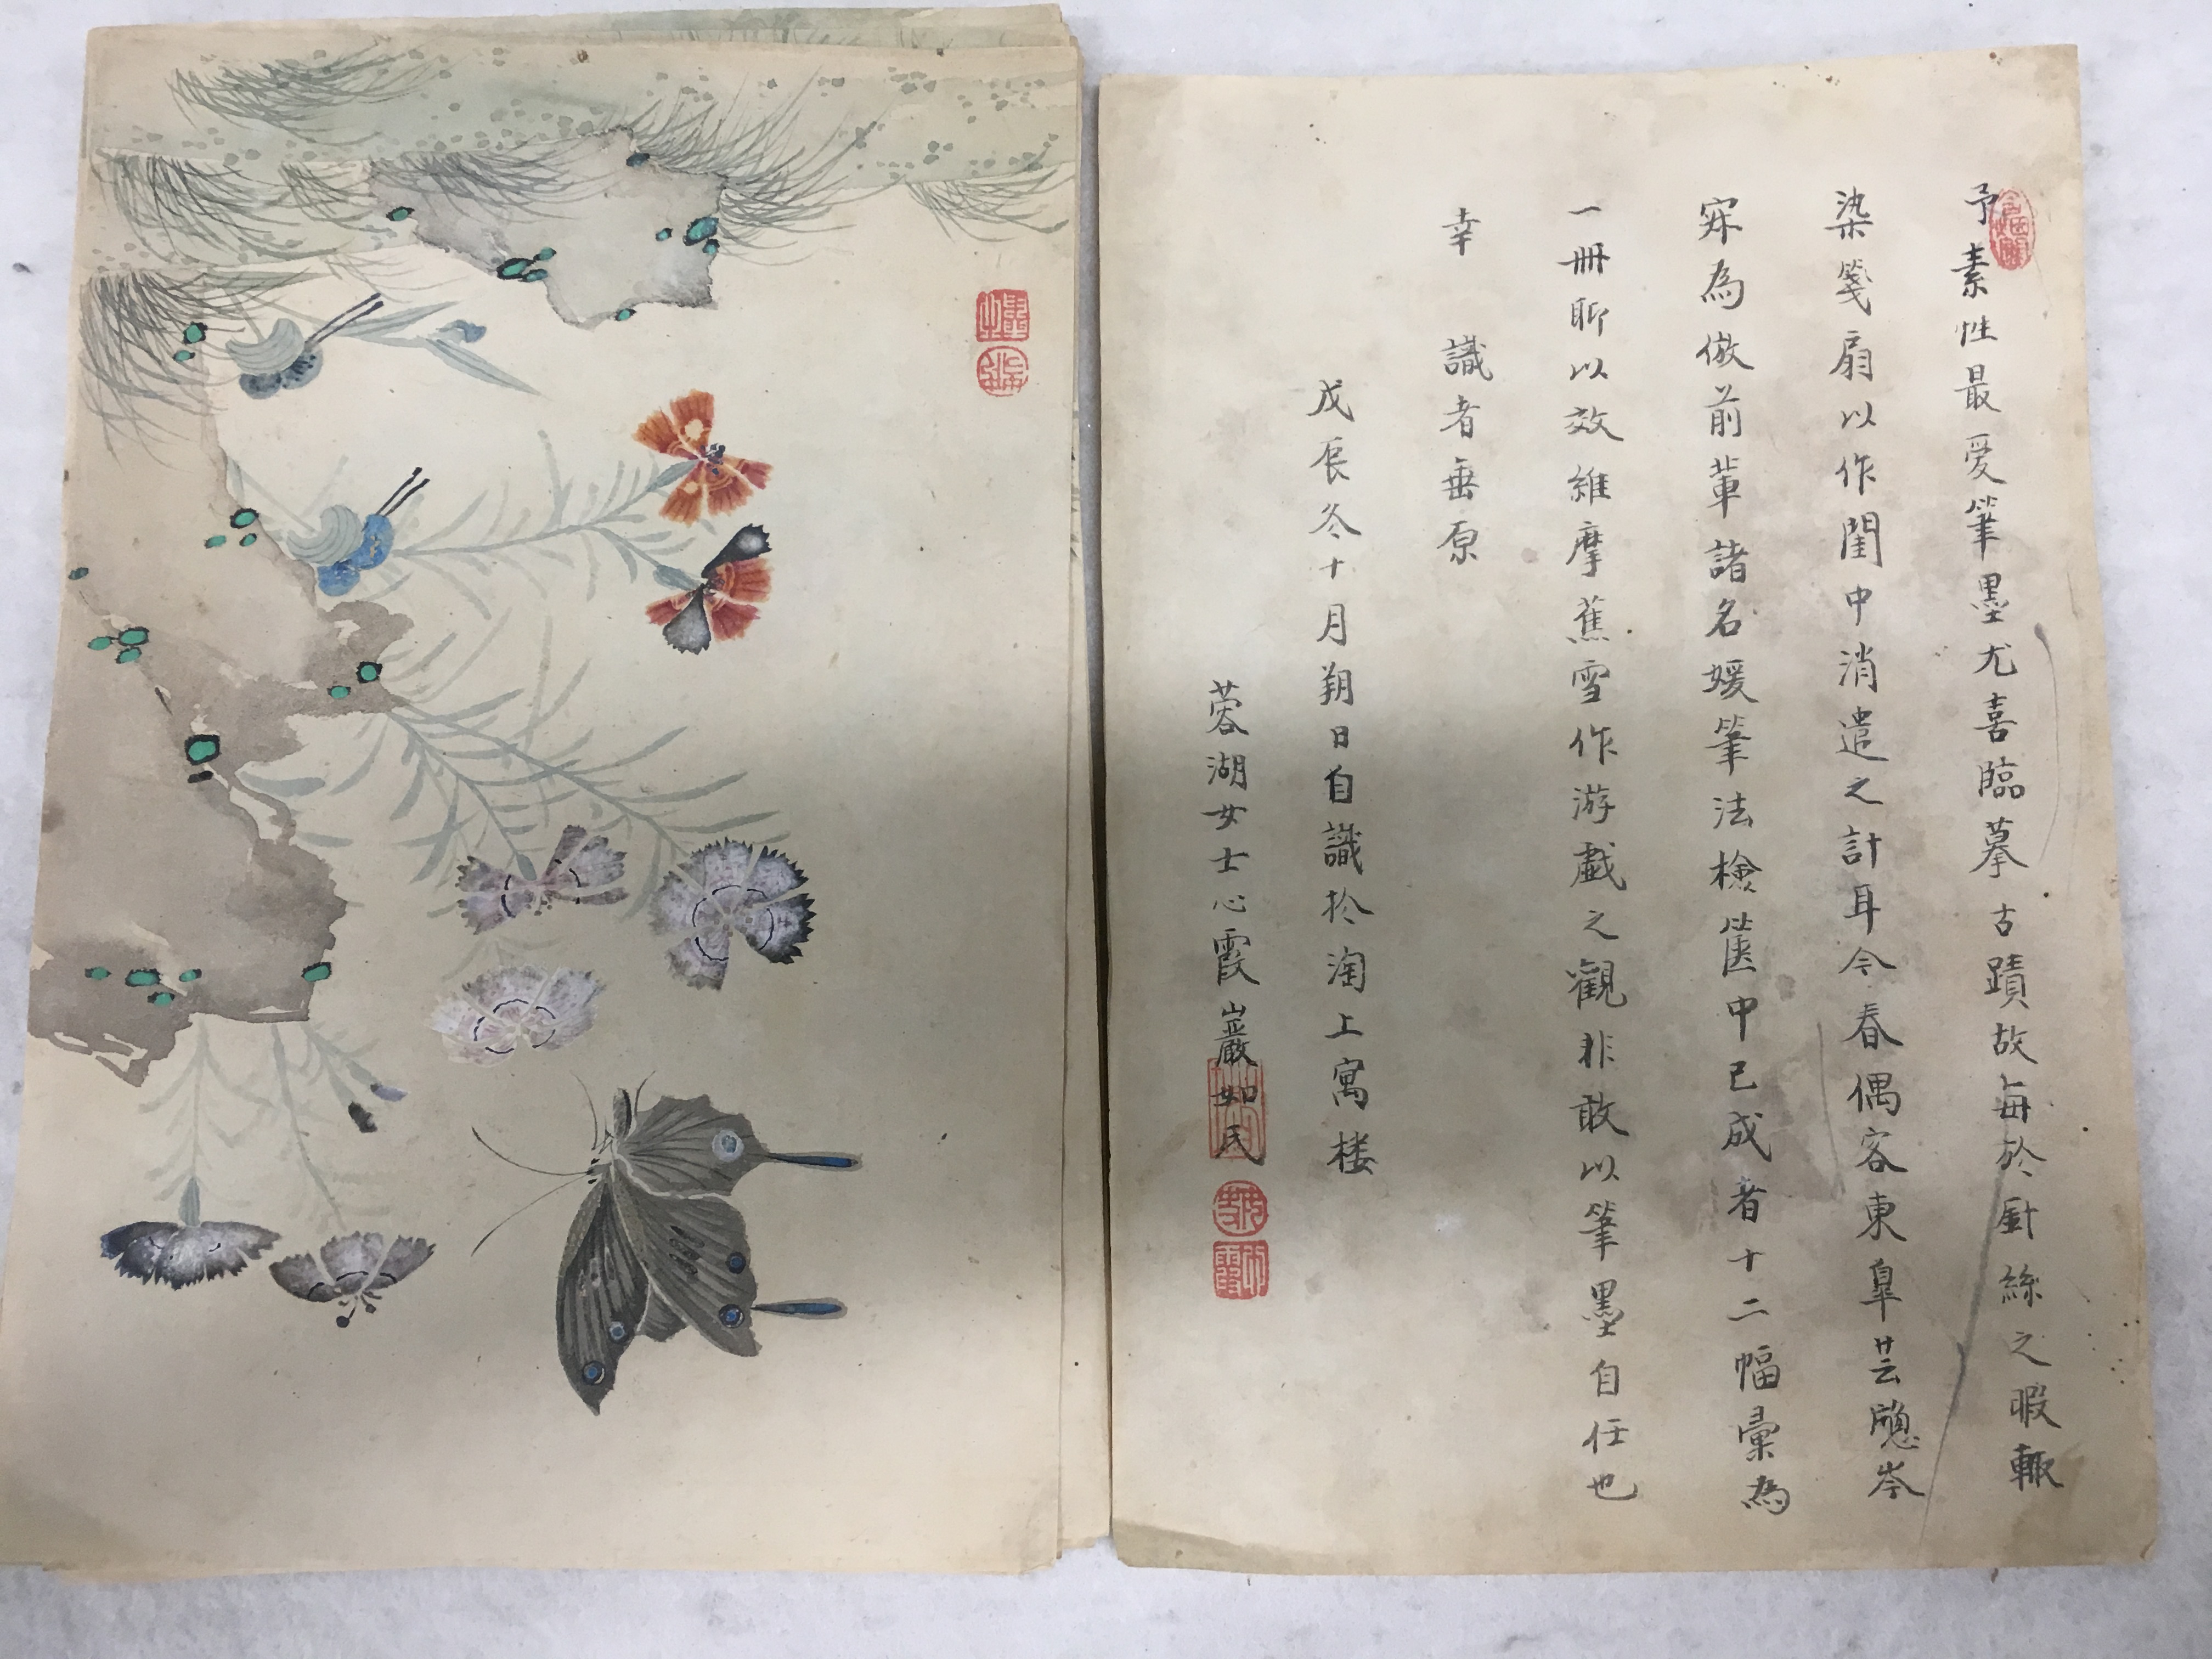 予素性最爱筆墨尤喜臨摹古蹟故每於針絲之暇輒
染箋扇以作閨中消遣之計耳今春偶客東皐芸牕岑
寂為倣前輩諸名媛筆法檢篋中已成者十二幅彙為
一冊聊以效維摩蕉雪作游戲之觀非敢以筆墨自任也
幸識者垂原
戊辰冬十月朔日自識於淘上寓楼
蓉湖女士心霞巖如氏